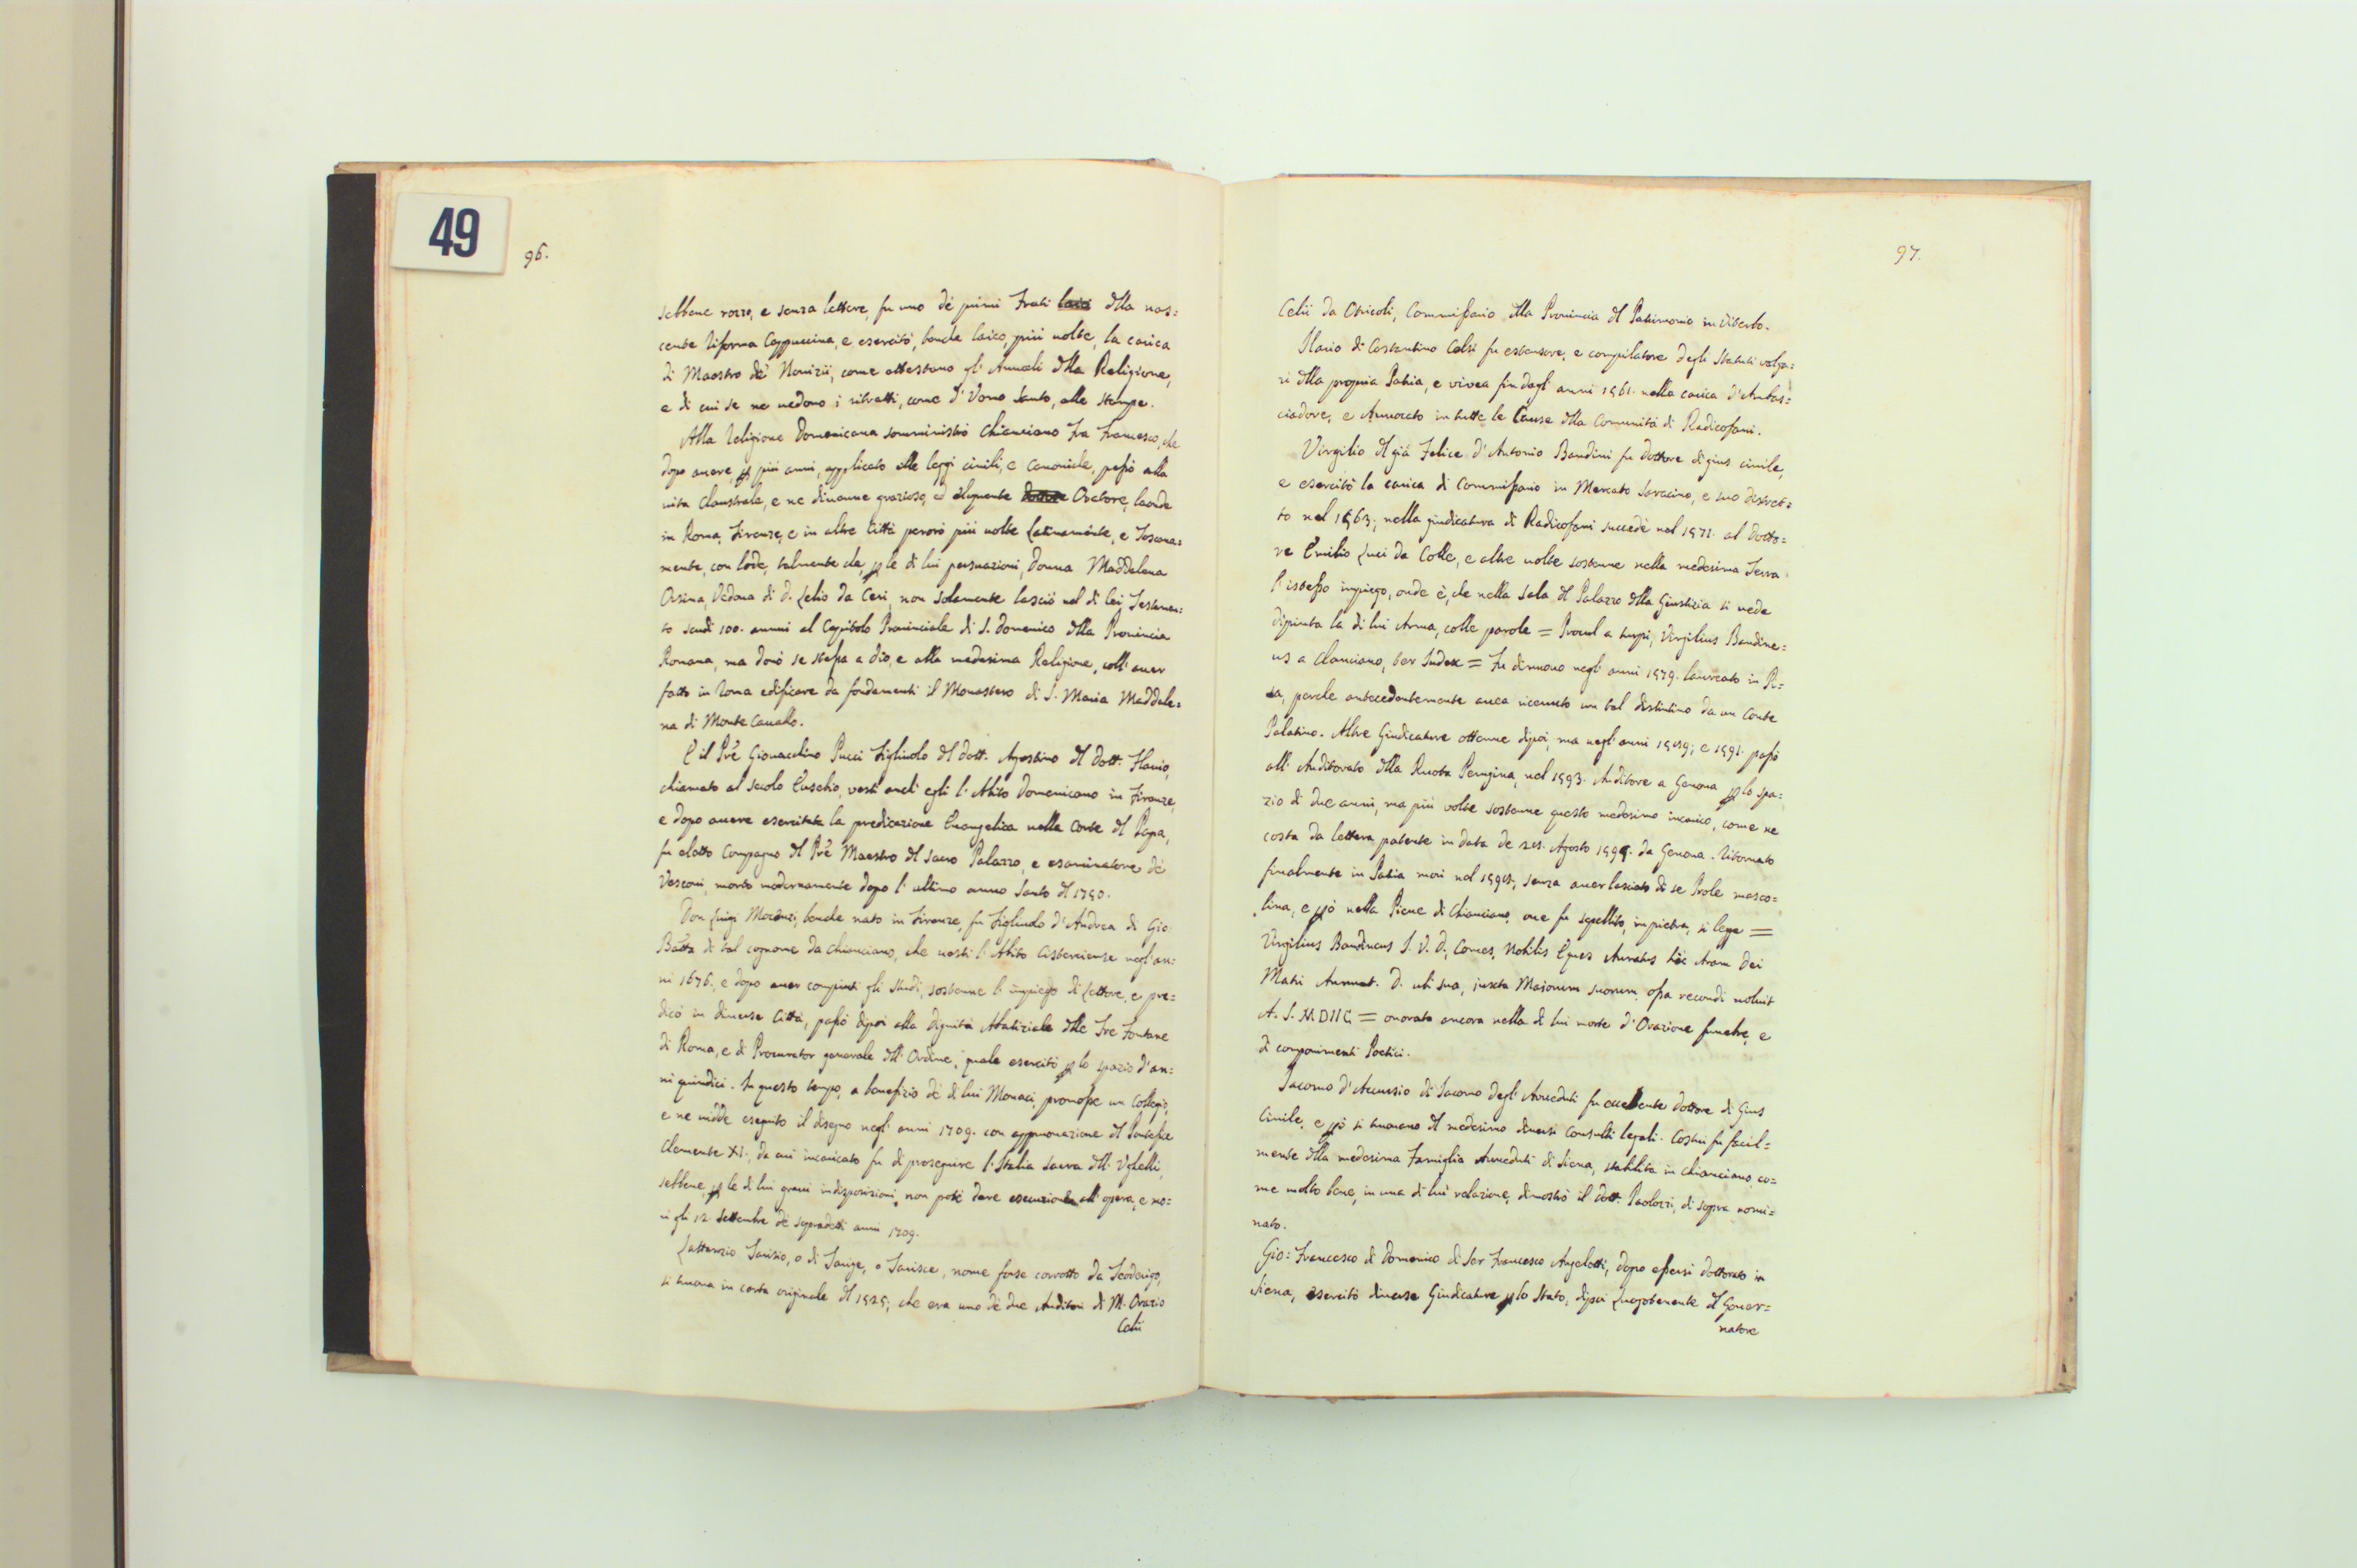 49
96.
sebbene rozzo, e senza lettere, fu uno de' primi Frati laici dlla nas=
cente Riforma Cappuccina, e esercitò, benche laico, più uolte, la carica
di Maestro de' Nouizii, come attestano gl' Annali dlla Religione,
e di cui se ne uedono i ritratti, come d' Vomo Santo, alle stampe.
Alla Religione Domenicana somministrò Chianciano Fra Francesco, che
dopo auere, p più anni, applicato alle leggi ciuili, e canoniche, passò alla
uita Claustrale, e ne diuenne grazioso, ed eloquente dottore Oratore, laonde
in Roma, Firenze, e in altre Città perorò più uolte Latinamente, e Toscana=
mente, con lode, talmente che, p le di lui persuazioni, Donna Maddalena
Orsina, Vedoua di D. Lelio da Ceri, non solamente lasciò nel di lei Testamen=
to scudi 100. annui al Capitolo Prouinciale di S. Domenico dlla Prouincia
Romana, ma donò se stessa a Dio, e alla medesima Religione, coll' auer
fatto in Roma edificare da fondamenti il Monastero di S. Maria Maddale=
na di Monte Cauallo.
E il Prē Giouacchino Pucci Figliuolo dl Dott. Agostino dl Dott. Flauio,
chiamato al secolo Eusebio, vestì anch' egli l' Abito Domenicano in Firenze,
e dopo auere esercitata la predicazione Euangelica nella Corte dl Papa,
fu eletto Compagno dl Prē Maestro dl Sacro Palazzo, e esaminatore de'
Vescoui, morto modernamente dopo l' ultimo anno Santo dl 1750.
Don Luigi benche nato in Firenze, fu Figliuolo d' Andrea di Gio:
Batta di tal cognome da Chianciano, che uestì l' Abito Cisterciense negl' an=
ni 1676., e dopo auer compiuti gli studi, sostenne l' impiego di Lettore, e pre=
dicò in diuerse Città, passò dipoi alla dignità Abatiziale dlle Tre Fontane
di Roma, e di Procurator generale dll' Ordine, quale esercitò p lo spazio d' an=
ni quindici. In questo tempo, a benefizio de' di lui Monaci, promosse un Collegio,
e ne uidde eseguito il disegno negl' anni 1709. con approuazione dl Pontefice
Clemente XI., da cui incaricato fu di proseguire l' Italia Sacra dll' Vghelli,
sebbene, p le di lui graui indisposizioni, non potè dare esecuzione all' opera, e mo=
rì gli 12 Settembre de' sopradetti anni 1709.
Lattanzio Tarisio, o di Tarige, o Tarisce, nome forse corrotto da Teoderigo,
si truoua in carta originale dl 1525; che era uno de' due Auditori di M. Orazio
Celii
97.
Celii da Otricoli, Commissario dlla Prouincia dl Patrimonio in Viterbo.
Ilario di Costantino Celsi fu estensore, e compilatore degli Statuti volga=
ri dlla propria Patria, e vivea fin dagl' anni 1561. nella carica d' Ambas=
ciadore, e Auuocato in tutte le Cause dlla Comunità di Radicofani.
Virgilio dl già Felice d' Antonio Bandini fu Dottore di gius ciuile,
e esercitò la carica di Commissario in Mercato Saracino, e suo distret=
to nel 1563.; nella giudicatura di Radicofani succedè nel 1571. al Dotto=
re Emilio Luci da Colle, e altre uolte sostenne nella medesima Terra
l' istesso impiego, onde è, che nella Sala dl Palazzo dlla Giustizia si uede
dipinta la di lui Arma, colle parole = Procul a turpi, Virgilius Bandine=
us a Clanciano, ter Iudex = Fu dinuouo negl' anni 1579. laureato in Pi=
sa, perche antecedentemente auea riceuuto un tal distintiuo da un Conte
Palatino. Altre Giudicature ottenne dipoi, ma negl' anni 1589; e 1591. passò
all' Auditorato dlla Ruota Perugina, nel 1593. Auditore a Genoua p lo spa=
zio di due anni, ma più volte sostenne questo medesimo incarico, come ne
costa da lettera patente in data de 28. Agosto 1595. da Genoua. Ritornato
finalmente in Patria morì nel 1598., senza auer lasciato di se Prole masco=
lina, e pò nella Pieue di Chianciano, oue fu sepellito, in pietra, si legge =
Virgilius Bandineus I. V. D., Comes, Nobilis Eques Auratus hāc Aram Dei
Matri Annunt. D. ubi sua, iuxta Maiorum suorum, ossa recondi uoluit
A. S. MDIIC = onorato ancora nella di lui morte d' Orazione funebre, e
di componimenti Poetici.
Iacomo d' Accursio di Iacomo degl' Auueduti fu eccellente Dottore di Gius
Ciuile, e pò si truouano dl medesimo diuersi Consulti legali. Costui fu facil=
mente dlla medesima Famiglia Auueduti di Siena, stabilita in Chianciano, co=
me molto bene, in una di lui relazione, dimostrò il Dott. Paolozzi, di sopra nomi=
nato.
Gio: Francesco di Domenico di Ser Francesco Angelotti, dopo essersi dottorato in
Siena, esercitò diuerse Giudicature p lo Stato, dipoi Luogotenente dl Gouer=
natore